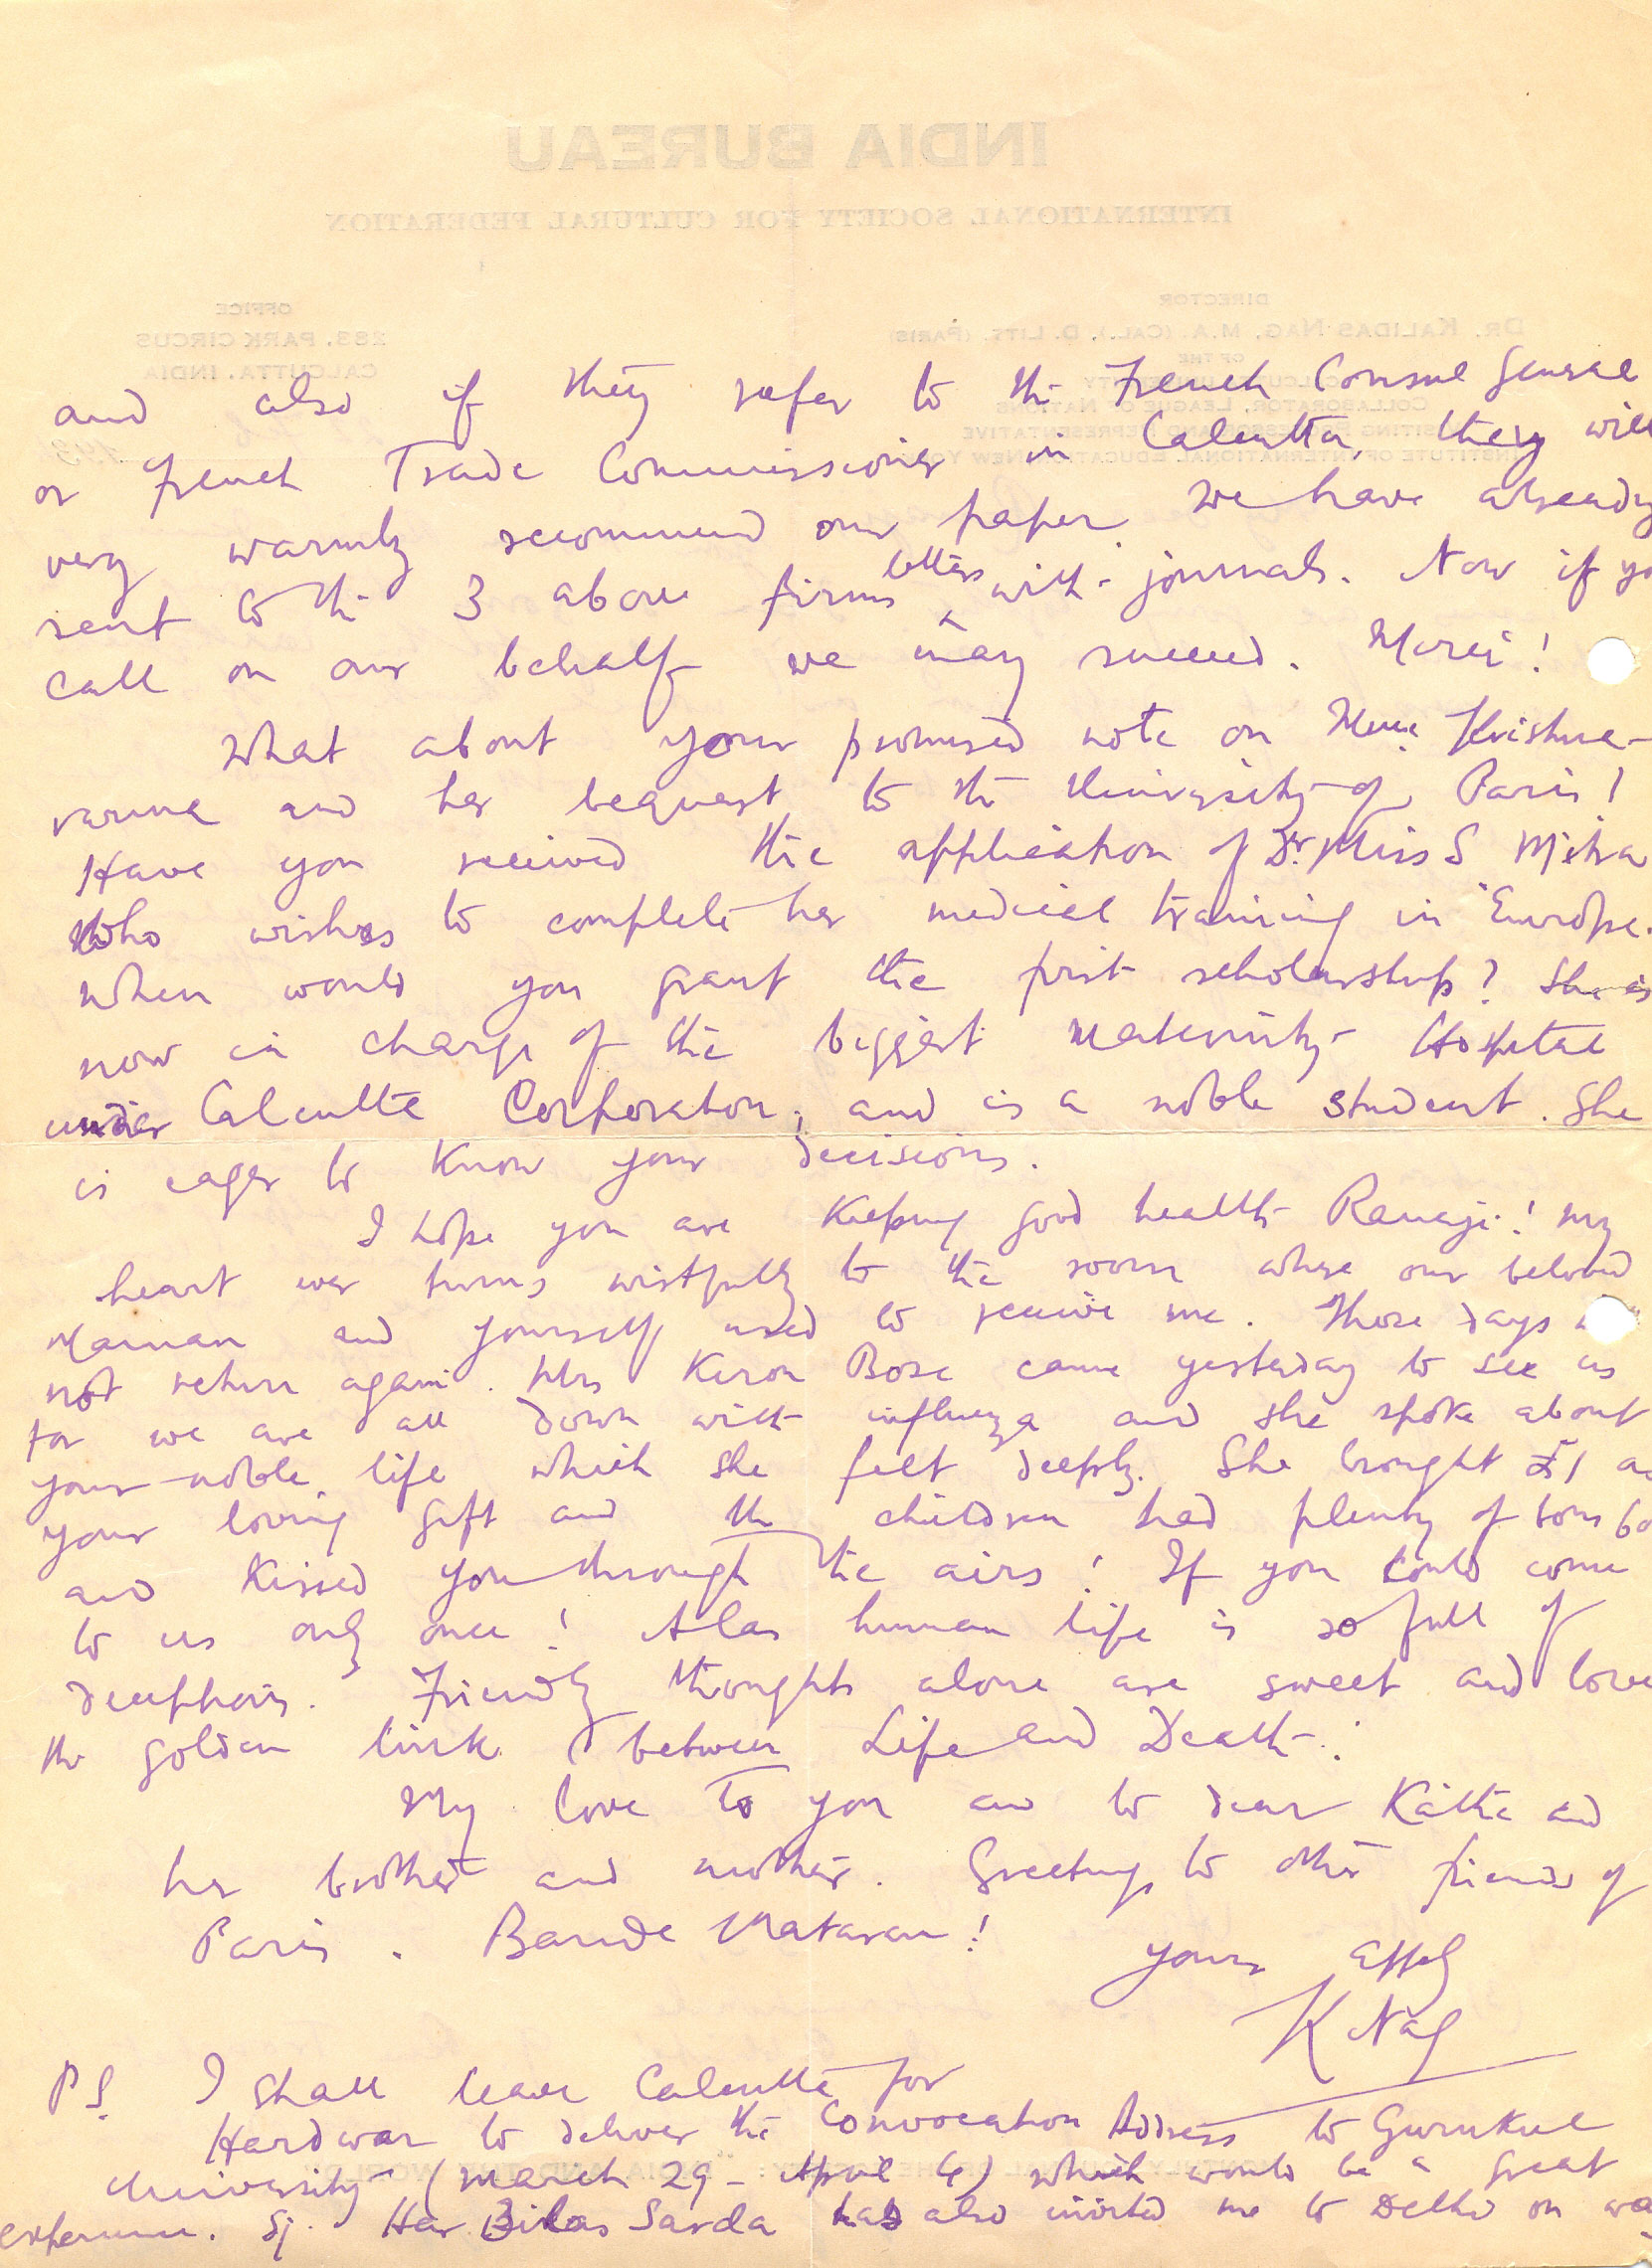 and also if they refer to the French Consul General
or French Trade Commissioner in Calcutta they will
very warmly recommend our paper. We have already
sent to the 3 above firms letters with journals. Now if yo
call on our behalf we may succeed. Merci!
What about your promised note on Mme Krishna-
varma and her bequest to the University of Paris!
Have you received the application of Dr. Miss S Mitra
who wishes to complete her medical training in Europe.
When would you grant the first scholarship? She is
now in charge of the biggest Maternity Hospital
under Calcutta Corporation, and is a noble student. She
is eager to know your decisions.
I hope you are keeping good health Ranaji! My
heart ever turns wistfully to the room where our beloved
Maman and yourself used to receive me. Those days
not return again. Mrs Keron Bose came yesterday to see us
for we are all down with influenza and she spoke about
your noble life which she felt deeply. She brought £1 as
your loving gift and the children had plenty of bon bo
and kissed you through the airs! If you could come
to us only once! Alas human life is so full of
deceptions. Friendly thoughts alone are sweet and love
the golden link between Life and Death.
My love to you and to dear Käthe and
her brother and mother. Greetings to other friends of
Paris. Bande Mataram!
Yours affly
K Nag
PS. I shall leave Calcutta for
Hardwar to deliver the Convocation Address to Gurukul
University (March 29 - April 4) which would be a great
experience. Sj. Har Bilas Sarda has also invited me to Delhi on way
INDIA BUREAU
INTERNATIONAL SOCIETY FOR CULTURAL FEDERATION
OFFICE
283, PARK CIRCUS
CALCUTTA, INDIA
DIRECTOR
DR. KALIDAS NAG, M.A. (CAL.), D. LITT. (PARIS)
OF THE
COLLABORATOR, LEAGUE OF NATIONS
VISITING PROFESSOR AND REPRESENTATIVE
INSTITUTE OF INTERNATIONAL EDUCATION, NEW YORK